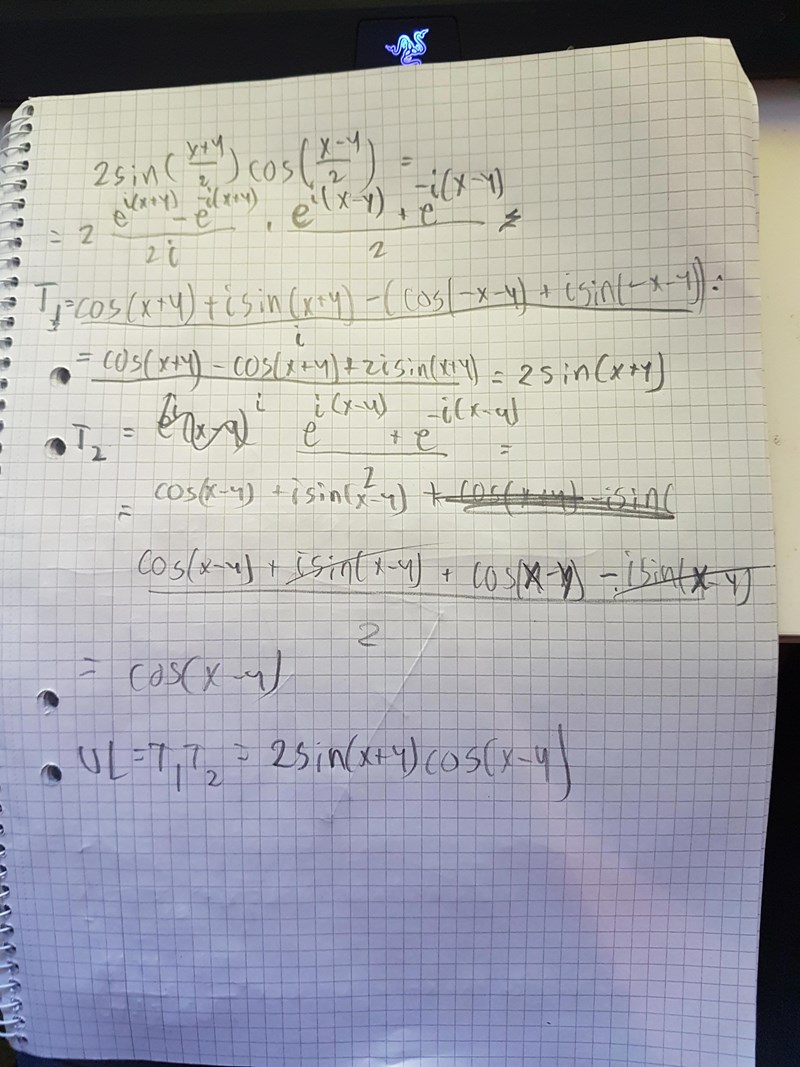 2sin(\frac{x+y}{2})cos(\frac{x-y}{2}) =
= 2 \frac{e^{i(x+y)} - e^{-i(x+y)}}{2i} \cdot \frac{e^{i(x-y)} + e^{-i(x-y)}}{2}
T_1 = \frac{cos(x+y) + isin(x+y) - (cos(-x-y) + isin(-x-y))}{i} =
= \frac{cos(x+y) - cos(x+y) + 2isin(x+y)}{i} = 2sin(x+y)
T_2 = \frac{e^{i(x-y)} + e^{-i(x-y)}}{2} =
= cos(x-y) + isin(x-y) +
\frac{cos(x-y) + isin(x-y) + cos(x-y) - isin(x-y)}{2}
= cos(x-y)
VL = T_1T_2 = 2sin(x+y)cos(x-y)